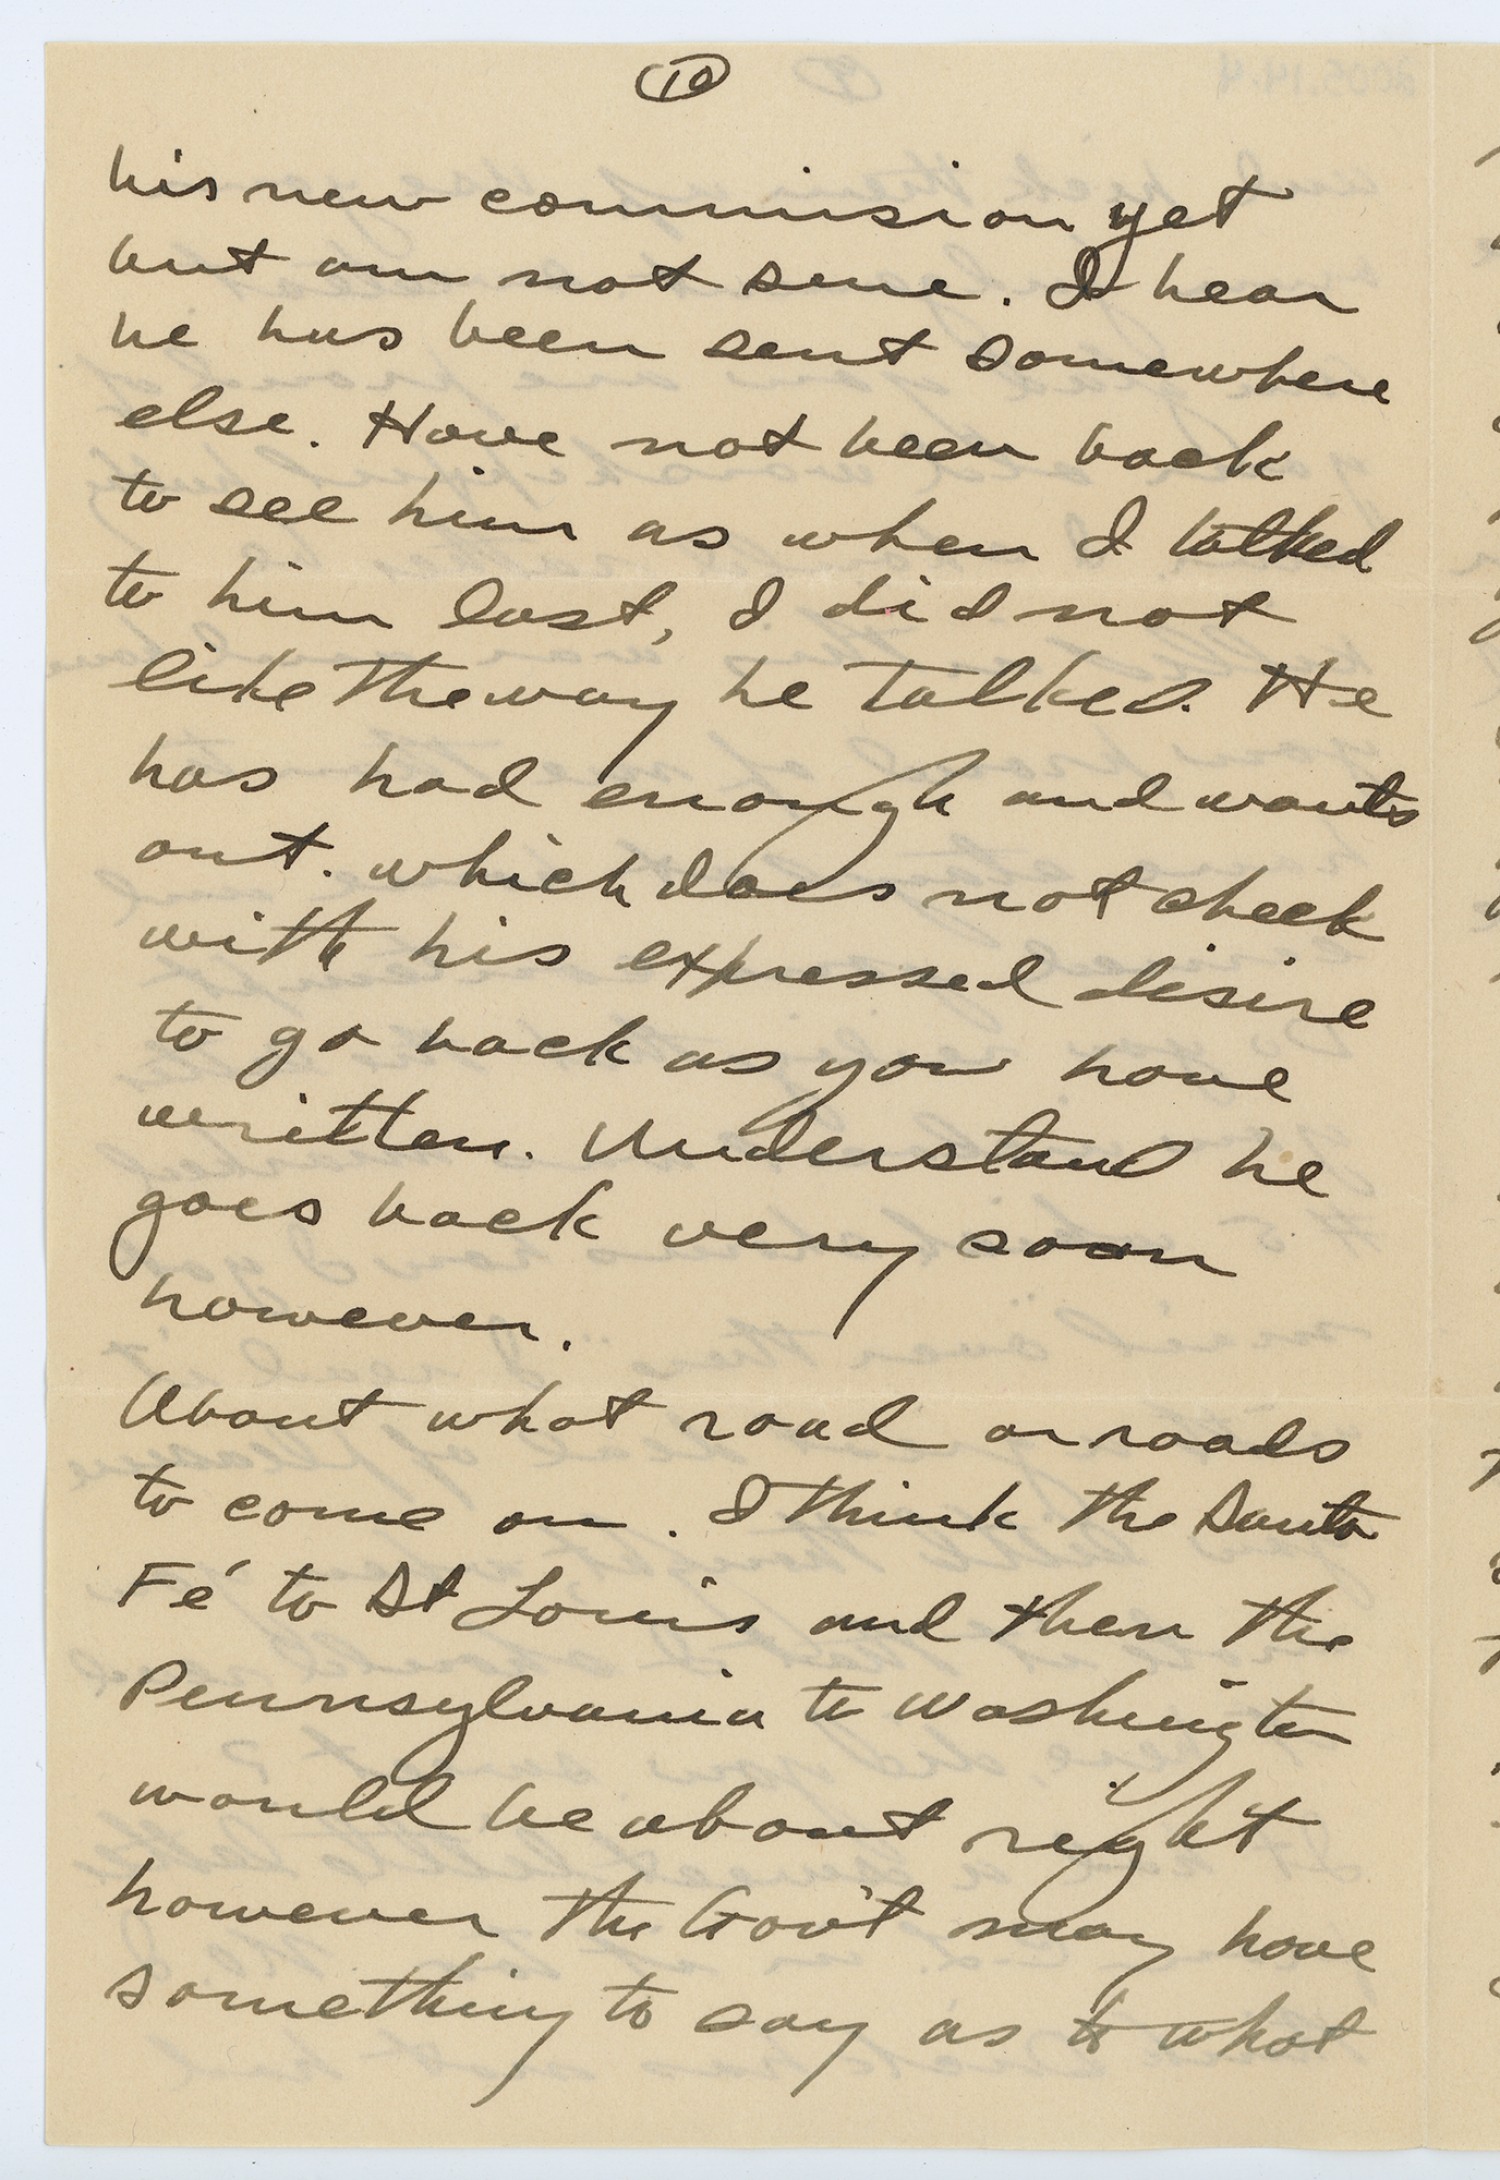 10
his new commision yet
but am not sure. I hear
he has been sent somewhere
else. Have not been back
to see him as when I talked
to him last, I did not
like the way he talked. He
has had enough and wants
out. which does not check
with his expressed desire
to go back as you have
written. Understand he
goes back very soon
however.
About what road or roads
to come on. I think the Santa
Fé to St Louis and then the
Pennsylvania to Washington
would be about right
however the Gov't may have
something to say as to what